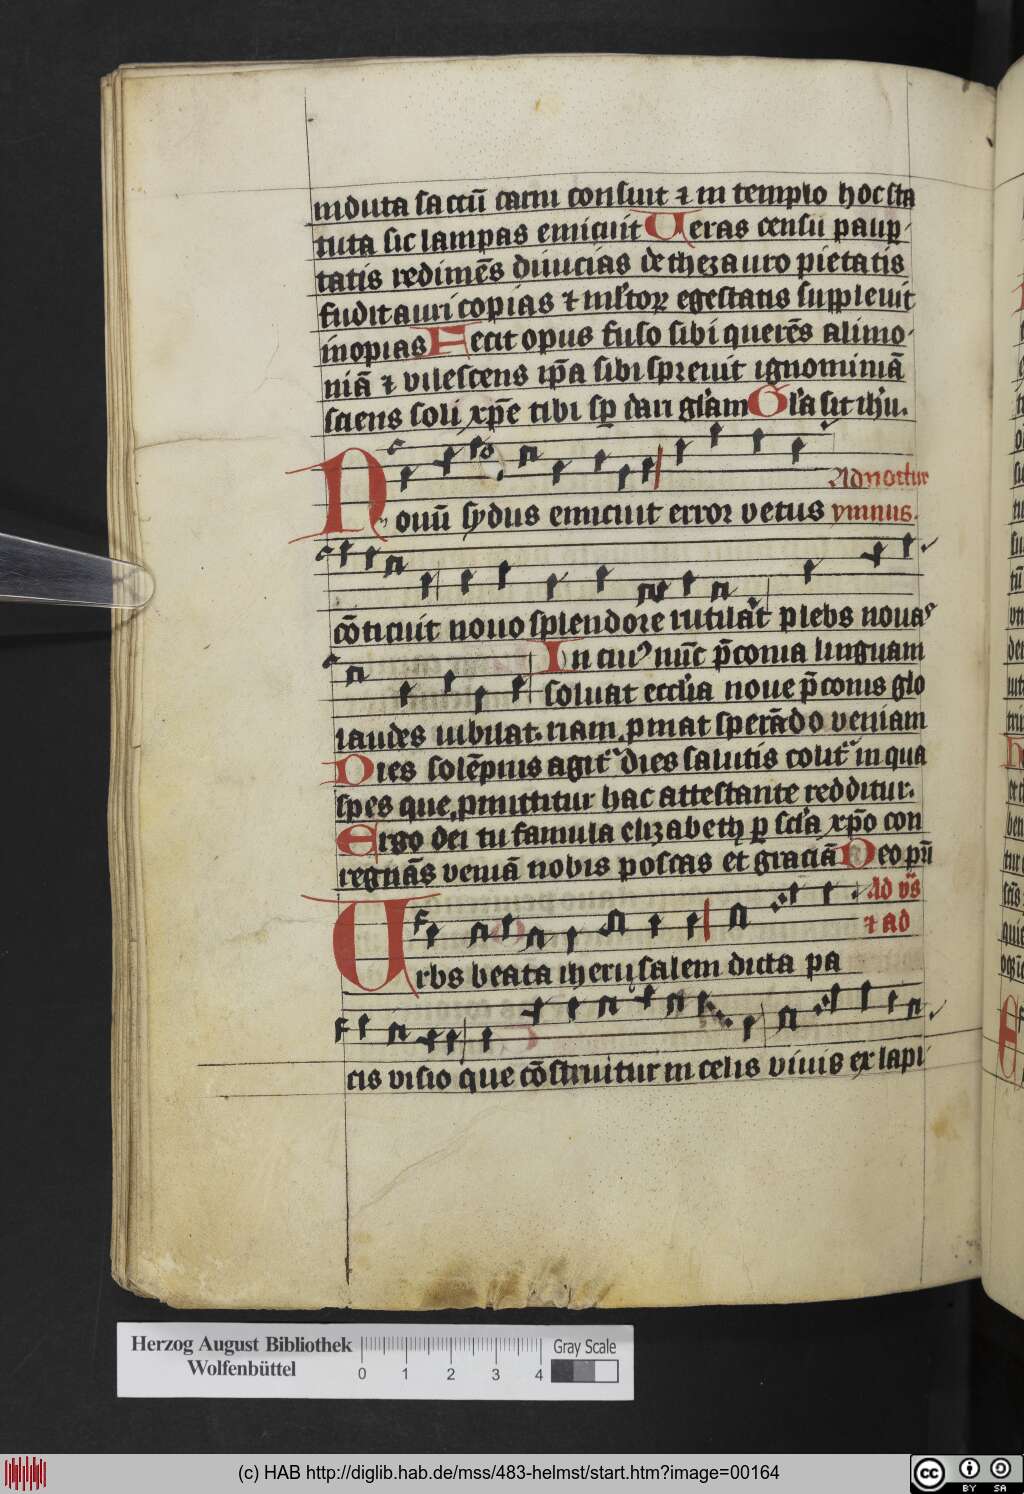 induta saccū carni consuit ⁊ in templo hoc sta
tuta sic lampas emicuit Ueras censu paup
tatis redimēs diuicias de thezauro pietatis
fudit auri copias ⁊ egestatis suppleuit
inopias Fecit opus fuso sibi querēs alimo
niā ⁊ vilescens ip̄a sibi spreuit ignominiā
sciens soli xp̄e tibi sp̄ dari gl'am Gl'a sit ih'u.
Ad noctur
Nouū sydus emicuit error vetus ymnus.
cōticuit nouo splendore rutilat plebs nouas
In cui' nūc p̄conia linguam
soluat eccl'ia noue p̄conis glo
laudes iubilat. nam pmat sperādo veniam
Dies solēpnis agit' dies salutis colit' in qua
spes que pmittitur hac attestante redditur.
Ergo dei tu famula elizabeth p sc'a xp̄o con
regnās veniā nobis poscas et graciā Deo pr̄i
Ad vs̄
⁊ ad
Urbs beata iherusalem dicta pa
cis visio que cōstruitur in celis viuis ex lapi
Herzog August Bibliothek
Wolfenbüttel
0 1 2 3 4
Gray Scale
(c) HAB http://diglib.hab.de/mss/483-helmst/start.htm?image=00164
cc BY SA